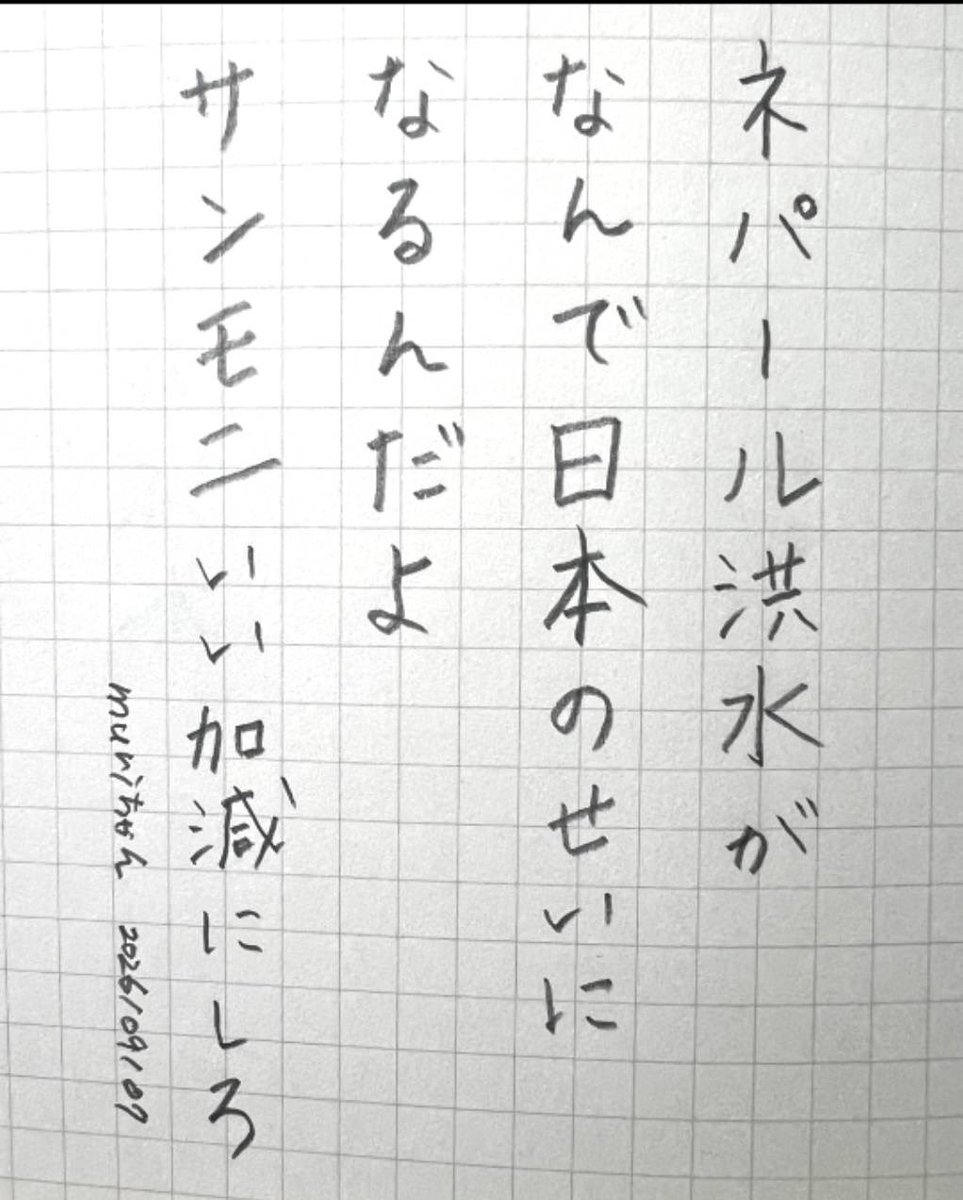 ネパール洪水が
なんで日本のせいに
なるんだよ
サンモニいい加減にしろ
muriちゃん 2026/09/09